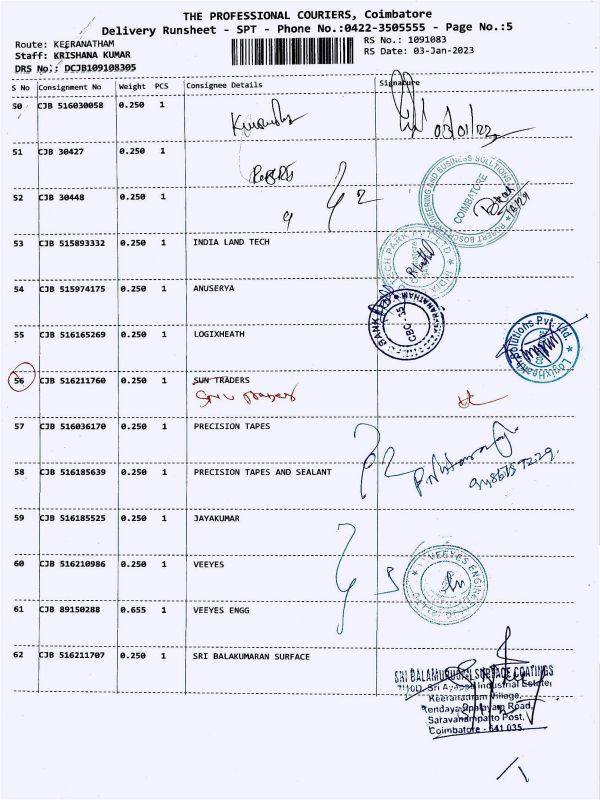 THE PROFESSIONAL COURIERS, Coimbatore
Delivery Runsheet - SPT - Phone No.:0422-3505555 - Page No.:5
Route: KEERANATHAM
Staff: KRISHANA KUMAR
DRS No.: DCJB109108305
RS No.: 1091083
RS Date: 03-Jan-2023
S No Consignment No Weight PCS Consignee Details Signature
50 CJB 516030058 0.250 1
51 CJB 30427 0.250 1
52 CJB 30448 0.250 1
53 CJB 515893332 0.250 1 INDIA LAND TECH
54 CJB 515974175 0.250 1 ANUSERYA
55 CJB 516165269 0.250 1 LOGIXHEATH
56 CJB 516211760 0.250 1 SUN TRADERS
57 CJB 516036170 0.250 1 PRECISION TAPES
58 CJB 516185639 0.250 1 PRECISION TAPES AND SEALANT
59 CJB 516185525 0.250 1 JAYAKUMAR
60 CJB 516210986 0.250 1 VEEYES
61 CJB 89150288 0.655 1 VEEYES ENGG
62 CJB 516211707 0.250 1 SRI BALAKUMARAN SURFACE
COIMBATORE
SRI BALAMURUGAN SURFACE COATINGS
Sri Ayyappa Industrial Estate,
Keeranatham Village,
Road,
Saravanampatto Post,
Coimbatore - 641 035.